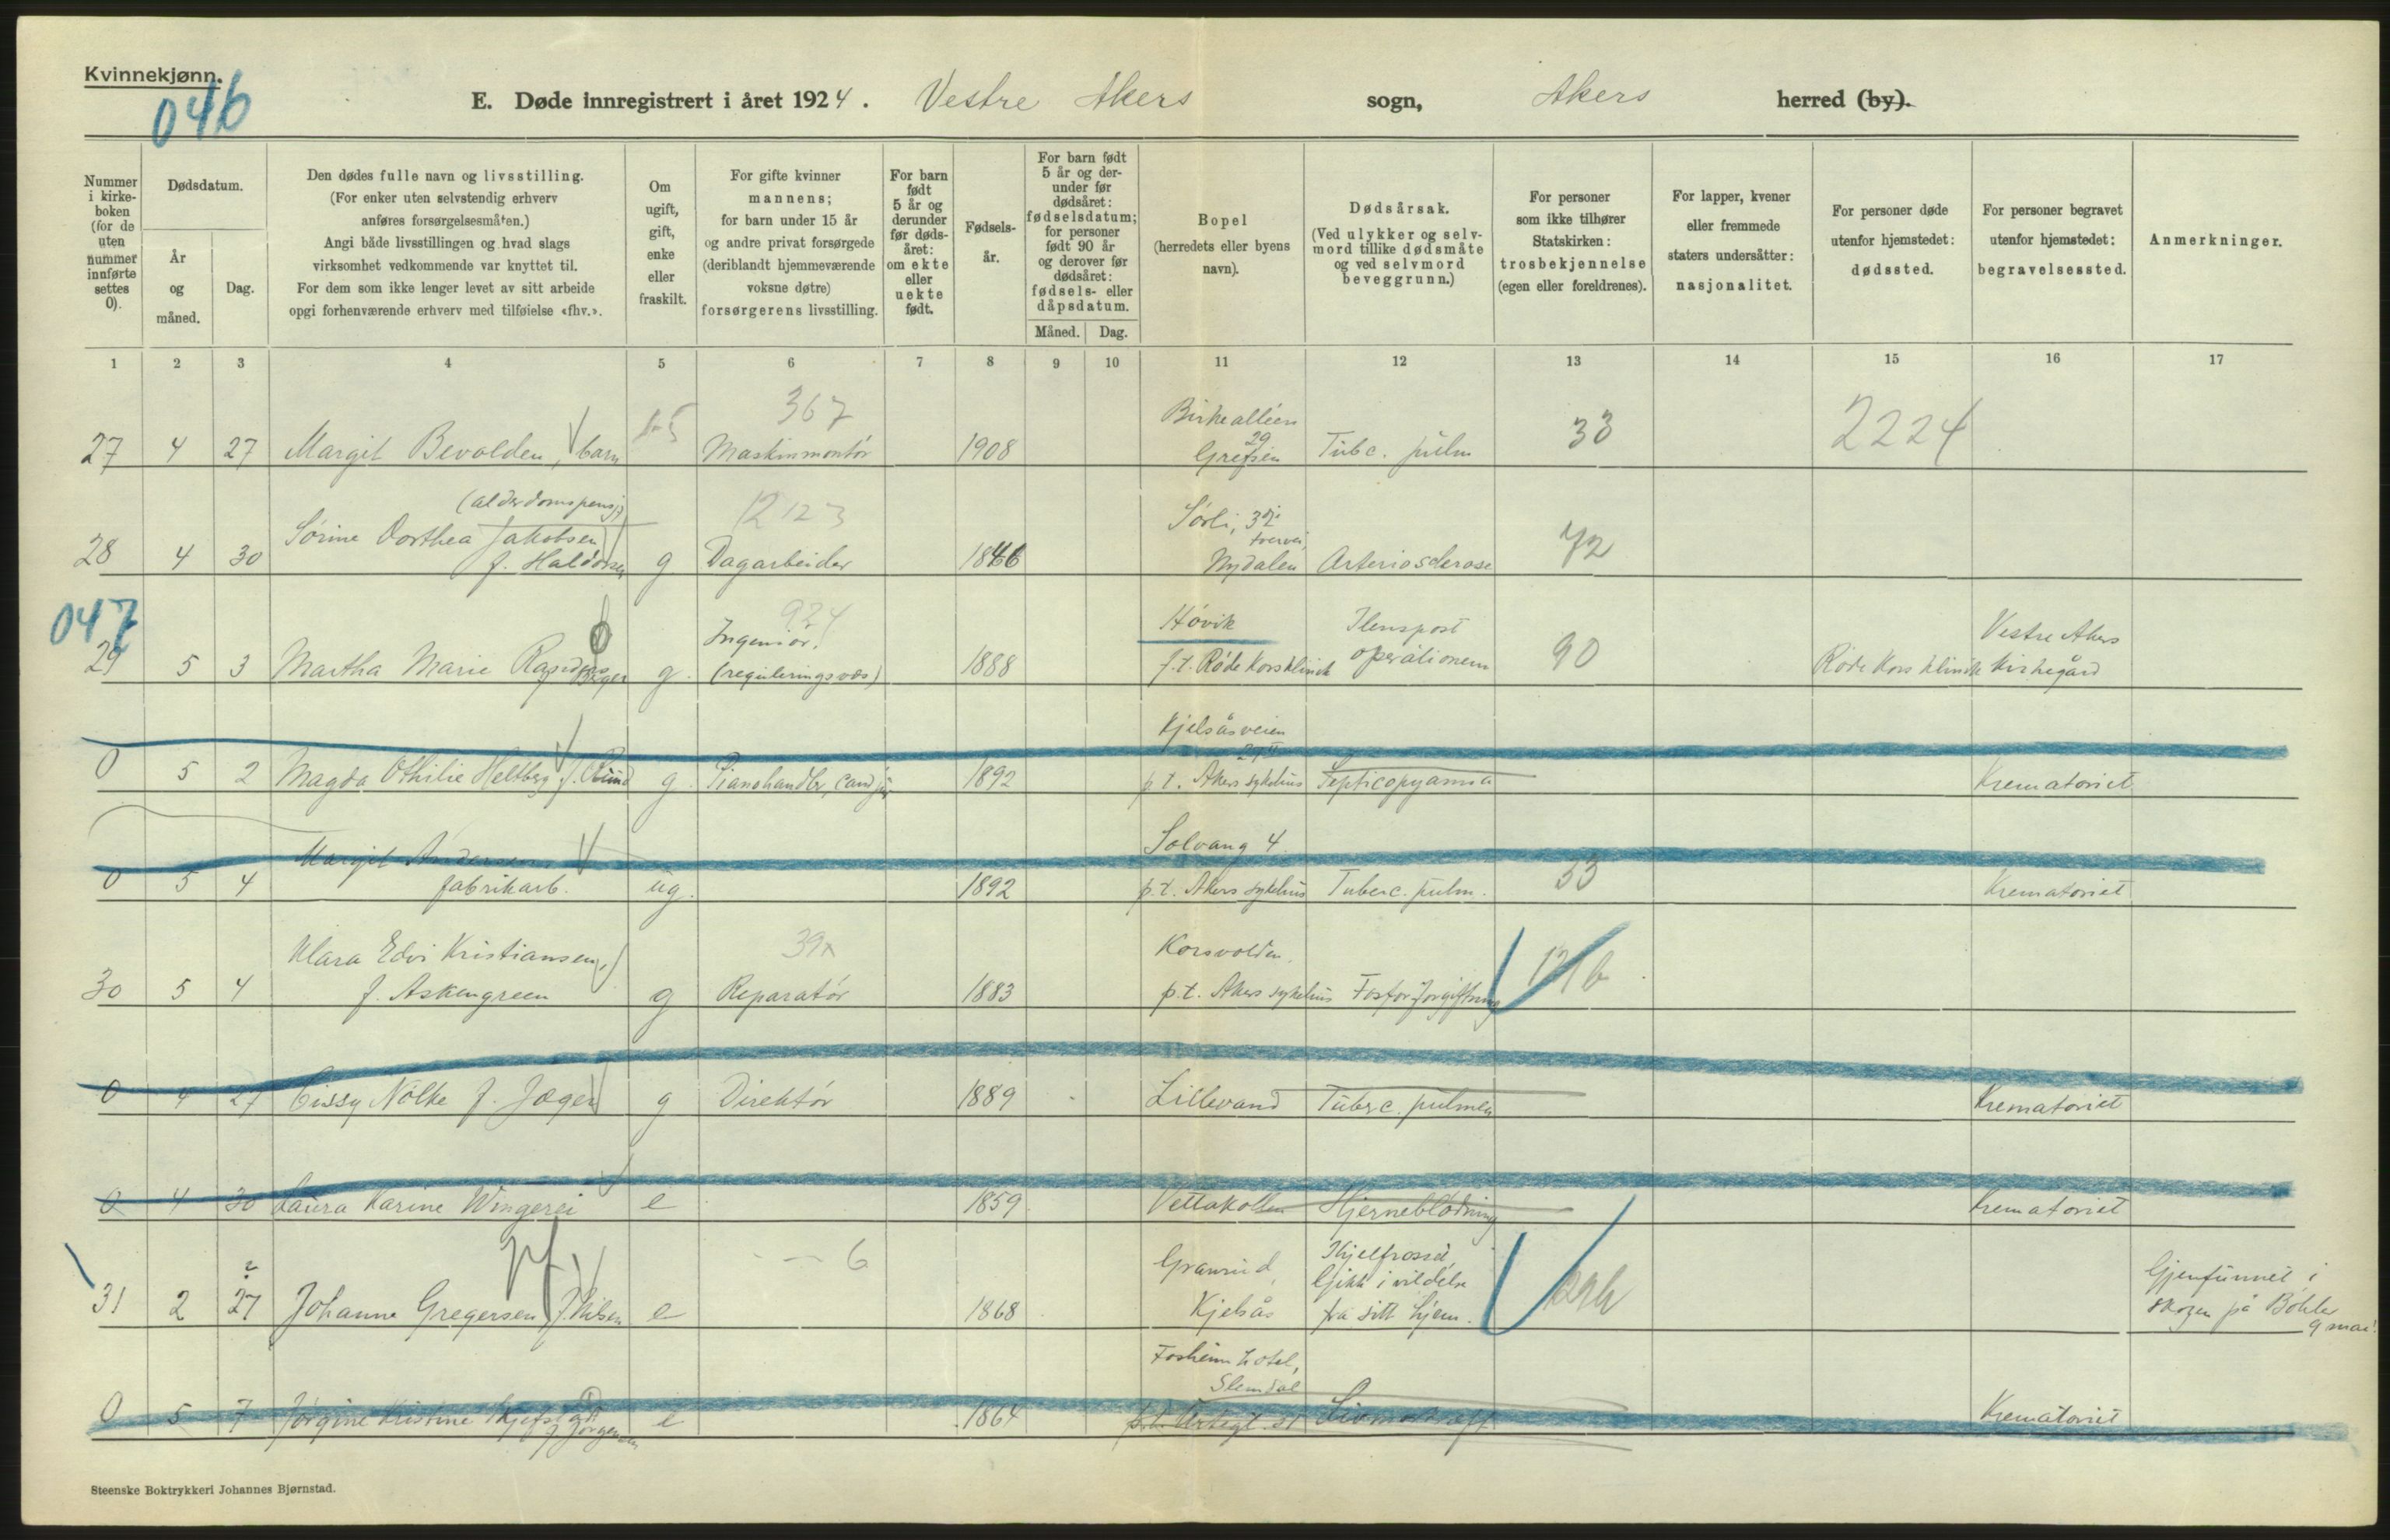 Kvinnekjønn.
046
E. Døde innregistrert i året 1924. Vestre Akers sogn, Akers herred (by).
Nummer i kirke-boken (for de uten nummer innførte settes 0).
Dødsdatum.
År og måned.
Dag.
Den dødes fulle navn og livsstilling.
(For enker uten selvstendig erhverv anføres forsørgelsesmåten.)
Angi både livsstillingen og hvad slags virksomhet vedkommende var knyttet til.
For dem som ikke lenger levet av sitt arbeide opgi forhenværende erhverv med tilføielse «fhv.».
Om ugift, gift, enke eller fraskilt.
For gifte kvinner mannens; for barn under 15 år og andre privat forsørgede (deriblandt hjemmeværende voksne døtre) forsørgerens livsstilling.
For barn født 5 år og derunder før døds-året: om ekte eller uekte født.
Fødsels-år.
For barn født 5 år og der-under før dødsåret: fødselsdatum; for personer født 90 år og derover før dødsåret: fødsels- eller dåpsdatum.
Måned. Dag.
Bopel (herredets eller byens navn).
Dødsårsak. (Ved ulykker og selv-mord tillike dødsmåte og ved selvmord beveggrunn.)
For personer som ikke tilhører Statskirken: trosbekjennelse (egen eller foreldrenes).
For lapper, kvener eller fremmede staters undersåtter: nasjonalitet.
For personer døde utenfor hjemstedet: dødssted.
For personer begravet utenfor hjemstedet: begravelsessted.
Anmerkninger.
1 2 3 4 5 6 7 8 9 10 11 12 13 14 15 16 17
367 Birkealléen
27 4 27 Margit Bevolden, barn Maskinmontör 1908 29 Grefsen Tubc. pulm 33 2224
(alderdomspensj.)
Sörine Dorthea Jakobsen 1212 3 Sörli, 3dje tverrvei,
28 4 30 f. Haldorsen g Dagarbeider 1846 Nydalen Arteriosclerose 72
047
924 Ingeniör, Hövik Ilenspost Vestre Akers
29 5 3 Martha Marie g. (reguleringsvæs) 1888 p.t. Röde Kors klinik operationem 90 Röde Kors klinik kirkegård
Kjelsåsveien
0 5 2 Magda Othilie Heltberg f. g. Pianohandler, cand jur 1892 p.t. Akers sykehus Septicopyæmia Krematoriet
Margit Andersen Solvang 4.
0 5 4 fabrikarb. ug. 1892 p.t. Akers sykehus Tuberc. pulm. 33 Krematoriet
Klara Edvi Kristiansen, 39 Korsvolden.
30 5 4 f. Askengreen g Reparatör 1883 p.t. Akers sykehus Fosforforgiftning
0 4 27 Cissy Nölke f. Jæger g Direktör 1889 Lillevand Tuberc. pulmon Krematoriet
0 4 30 Laura Karine Wingerei e 1859 Vettakollen Hjerneblödning Krematoriet
6 Granrud, Ihjelfrosset,
31 2 27 Johanne Gregersen f. Nilsen e 1868 Kjelsås Gikk i vildelse fra sitt hjem. Gjenfunnet i skogen på Böhler 9 mai.
Fosheim hotel, Slemdal
0 5 7 Jörgine Kristine f. Jörgensen e 1864 Krematoriet
Steenske Boktrykkeri Johannes Bjørnstad.